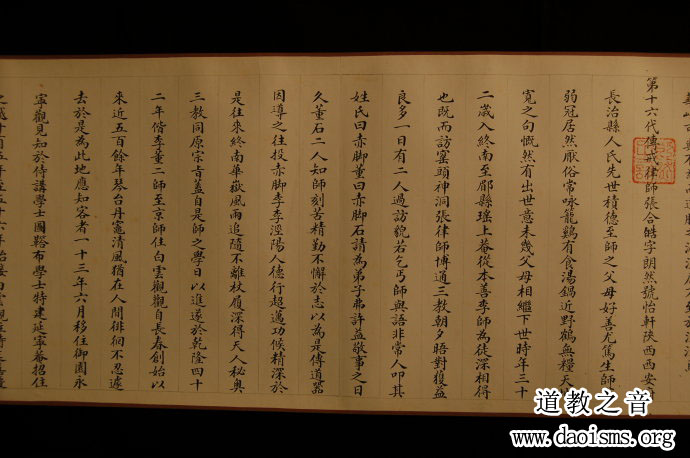 第十六代傳戒律師張合皓字朗然號怡軒陝西西安
長治縣人氏先世積德至師之父母好善尤篤生師
弱冠居然厭俗常咏籠鷄有食湯鍋近野鶴無糧天
寬之句慨然有出世意未幾父母相繼下世時年三十
二歲入終南至郿縣瑤上菴從本善李師為徒深相得
也既而訪窑頭神洞張律師博通三教朝夕晤對獲益
良多一日有二人過訪貌若乞丐師與語非常人叩其
姓氏曰赤脚董曰赤脚石請為弟子弗許益敬事之日
久董石二人知師刻苦精勤不懈於志以為是傳道器
因導之往投赤脚李李涇陽人德行超邁功候精深於
是往來終南華嶽風雨追隨不離杖履深得天人秘奥
三教同原宗旨蓋自是師之學日以進遂於乾隆四十
二年偕李董二師至京師住白雲觀觀自長春創始以
來近五百餘年琴台丹竈清風猶在人間徘徊不忍遽
去於是為此地應知客者一十三年六月移住御園永
寧觀見知於侍講學士圖鞳布學士特建延寧菴招住
道教之音
www.daoisms.org